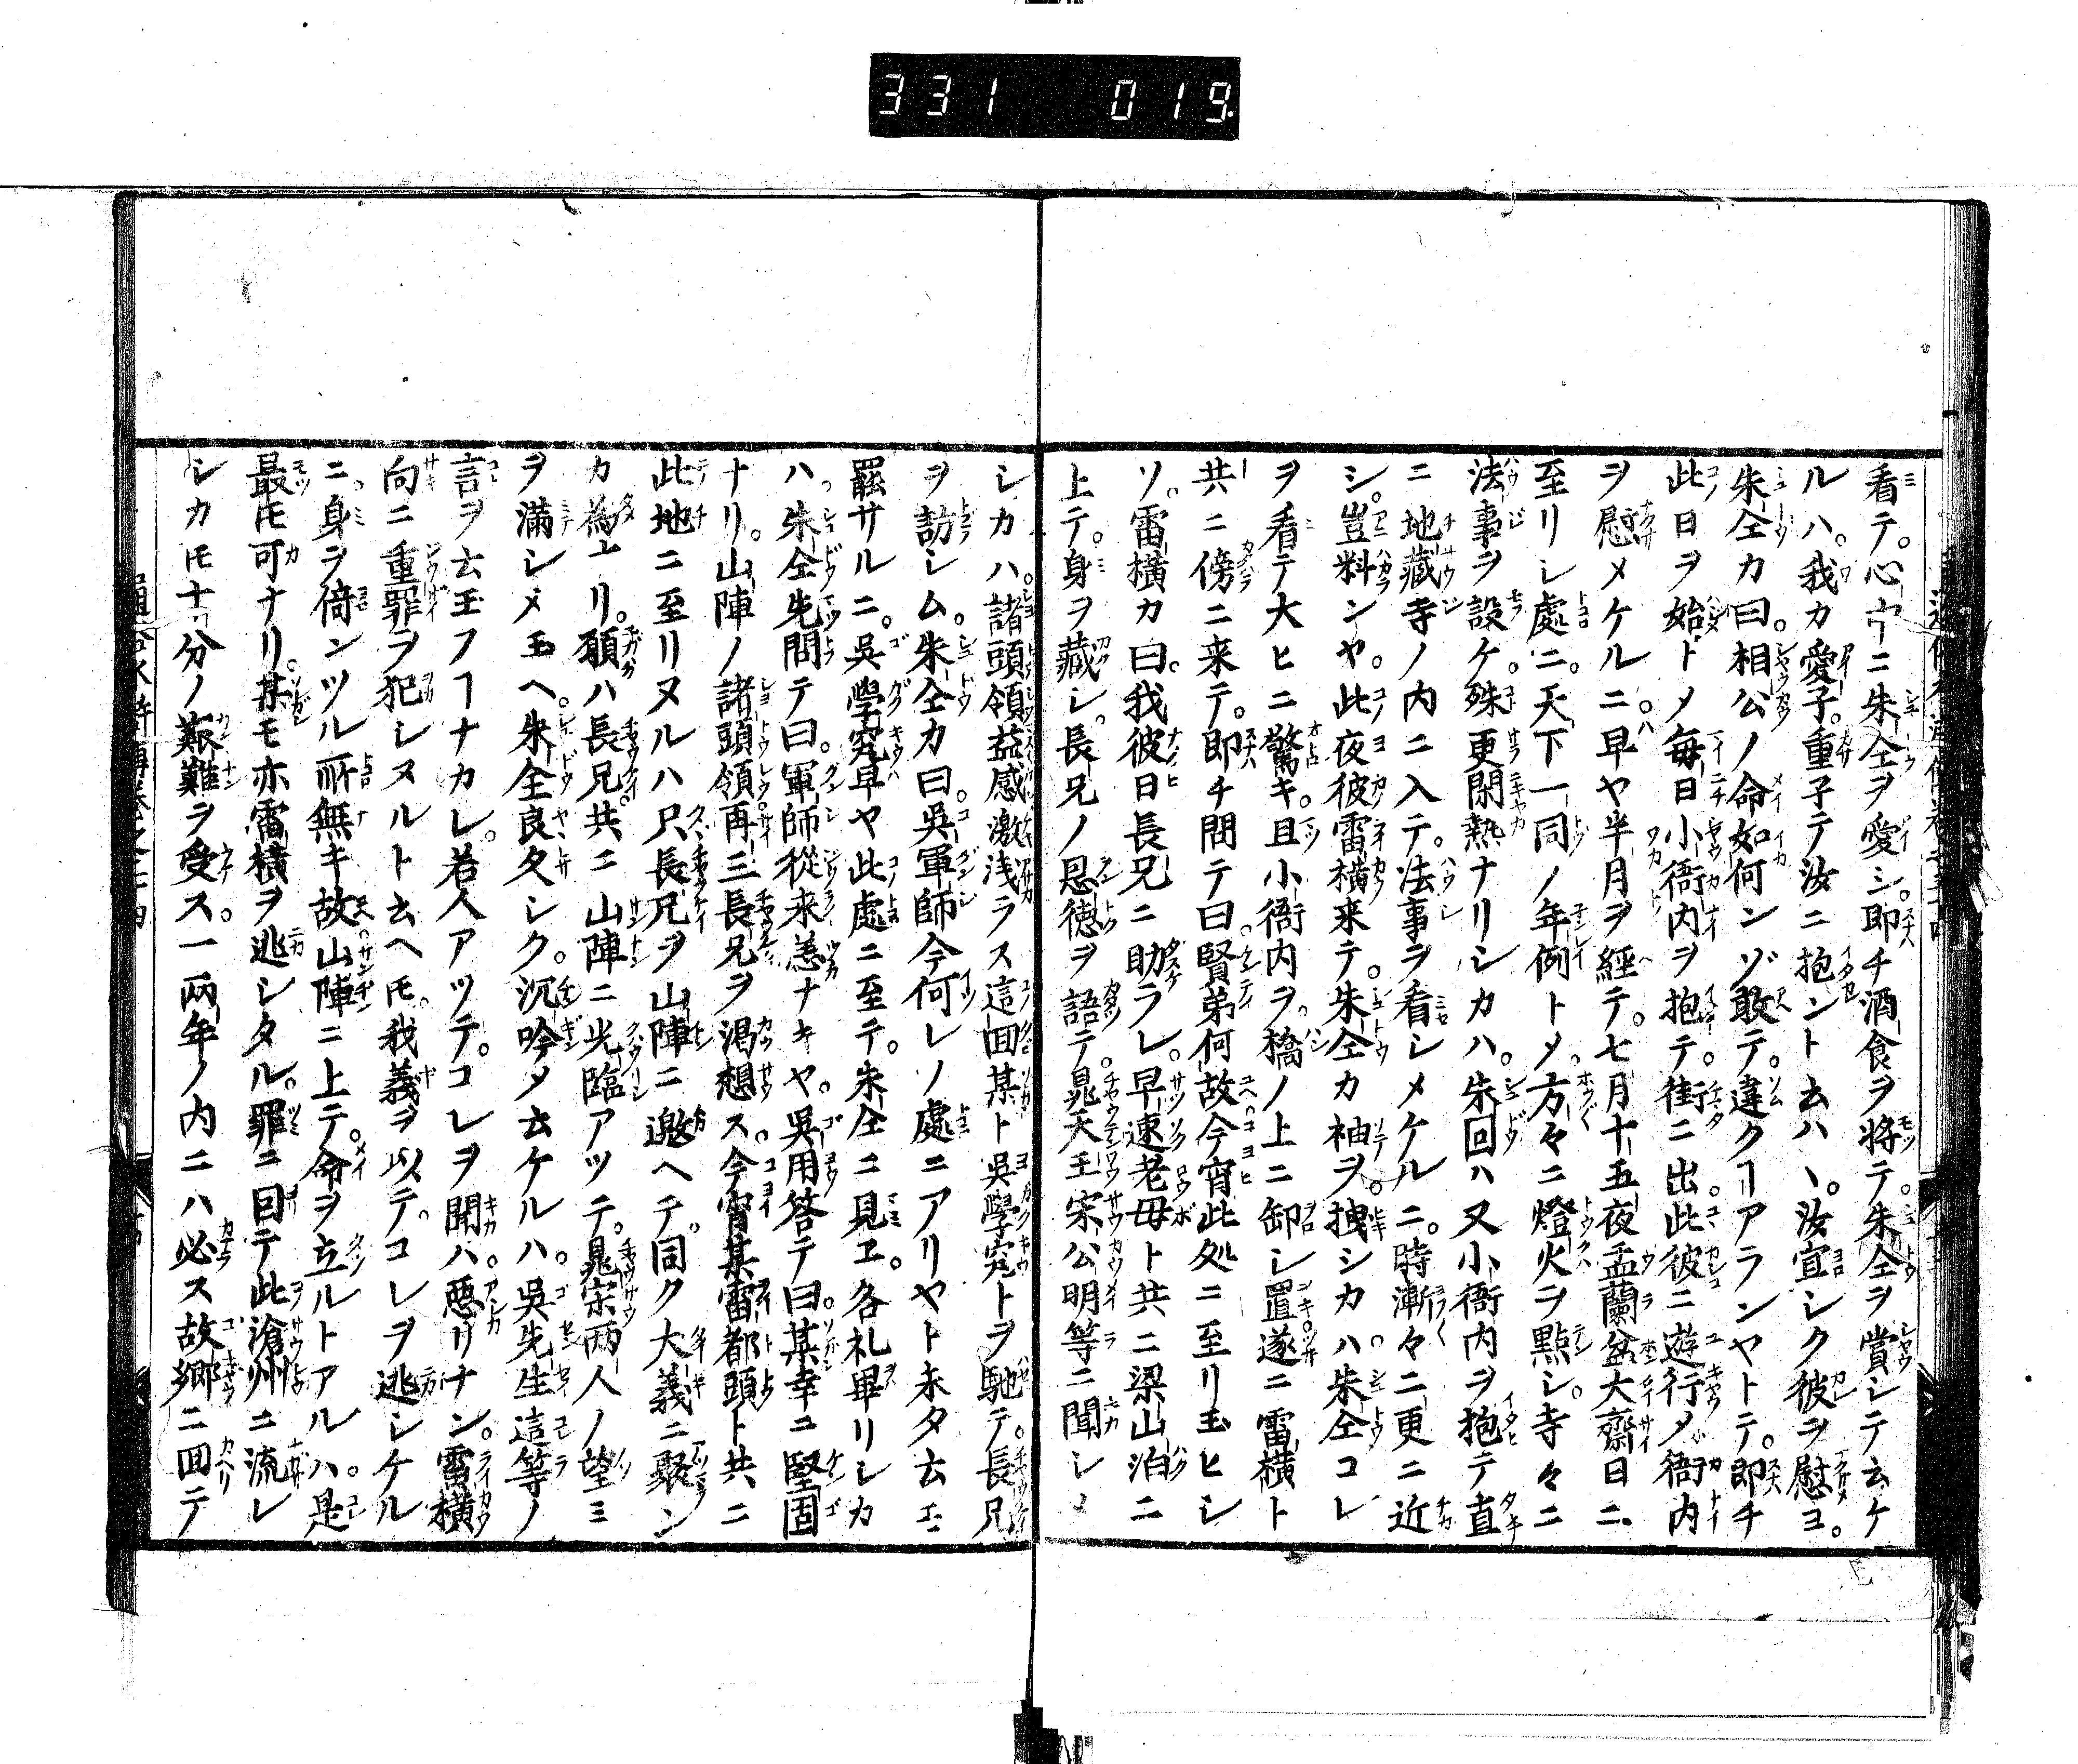 331 019
看テ。心中ニ朱仝ヲ愛シ。即チ酒食ヲ將テ。朱仝ヲ賞シテ云ケ
ルハ。我カ愛子。重子テ汝ニ抱ントセハヽ。汝宜シク彼ヲ慰ヨ。
朱仝カ曰。相公ノ命如何ンゾ敢テ。違クヿアランヤトテ。即チ
此日ヲ始トメ毎日小衙内ヲ抱テ。街ニ出此彼ニ遊行メ小衙内
ヲ慰メケルニ。早ヤ半月ヲ經テ。七月十五夜盂蘭盆大齋日ニ
至リシ處ニ。天下一同ノ年例トメ。方々ニ燈火ヲ點シ。寺々ニ
法事ヲ設ケ。殊更閙熱ナリシカハ。朱仝ハ又小衙内ヲ抱テ直
ニ地藏寺ノ内ニ入テ。法事ヲ看シメケルニ。時漸々ニ更ニ近
シ。豈料ンヤ。此夜彼雷横来テ。朱仝カ袖ヲ。拽シカハ。朱仝コレ
ヲ看テ大ヒニ驚キ。且小衙内ヲ。橋ノ上ニ卸シ置。遂ニ雷横ト
共ニ傍ニ来テ。即チ問テ曰。賢弟何故今宵此処ニ至リ玉ヒシ
ソ。雷横カ曰。我彼日長兄ニ助ラレ。早速老母ト共ニ梁山泊ニ
上テ。身ヲ藏シ。長兄ノ恩徳ヲ語テ。晁天王宋公明等ニ聞シメ
シカハ。諸頭領益感激浅ラス這回某ト吳學究トヲ馳テ。長兄
ヲ訪シム。朱仝カ曰。吳軍師今何レノ處ニアリヤト未タ云モ
罷サルニ。吳學究早ヤ此處ニ至テ。朱仝ニ見ヱ。各礼畢リシカ
ハ。朱仝先問テ曰。軍師従来恙ナキヤ。吳用答テ曰。某幸ニ堅固
ナリ。山陣ノ諸頭領再三長兄ヲ渇想ス。今宵某雷都頭ト共ニ
此地ニ至リヌルハ只長兄ヲ山陣ニ邀ヘテ。同ク大義ニ聚ン
カ為ナリ。願ハ長兄共ニ山陣ニ光臨アツテ。晁宋两人ノ望ミ
ヲ滿シメ玉ヘ。朱仝良久シク。沉吟メ云ケルハ。吳先生這等ノ
言ヲ云玉フヿナカレ。若人アツテ。コレヲ聞ハ。惡リナン。雷横
向ニ重罪ヲ犯シヌルト云ヘモ。我義ヲ以テ。コレヲ逃シケル
ニ。身ヲ倚ンツル所無キ故。山陣ニ上テ。命ヲ立ルトアルハ。是
最モ可ナリ。某モ亦雷横ヲ逃シタル。罪ニ因テ此滄州ニ流レ
シカモ十分ノ艱難ヲ受ス。一两年ノ内ニハ必ス故郷ニ回テ